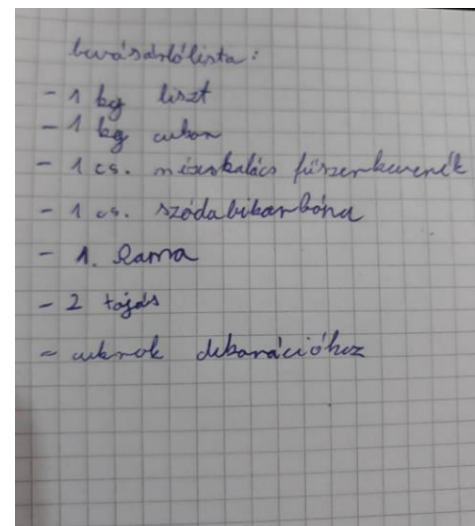 bevásárlólista:
- 1 kg liszt
- 1 kg cukor
- 1 cs. mézeskalács fűszerkeverék
- 1 cs. szódabikarbóna
- 1. Rama
- 2 tojás
- cukrok dekorációhoz